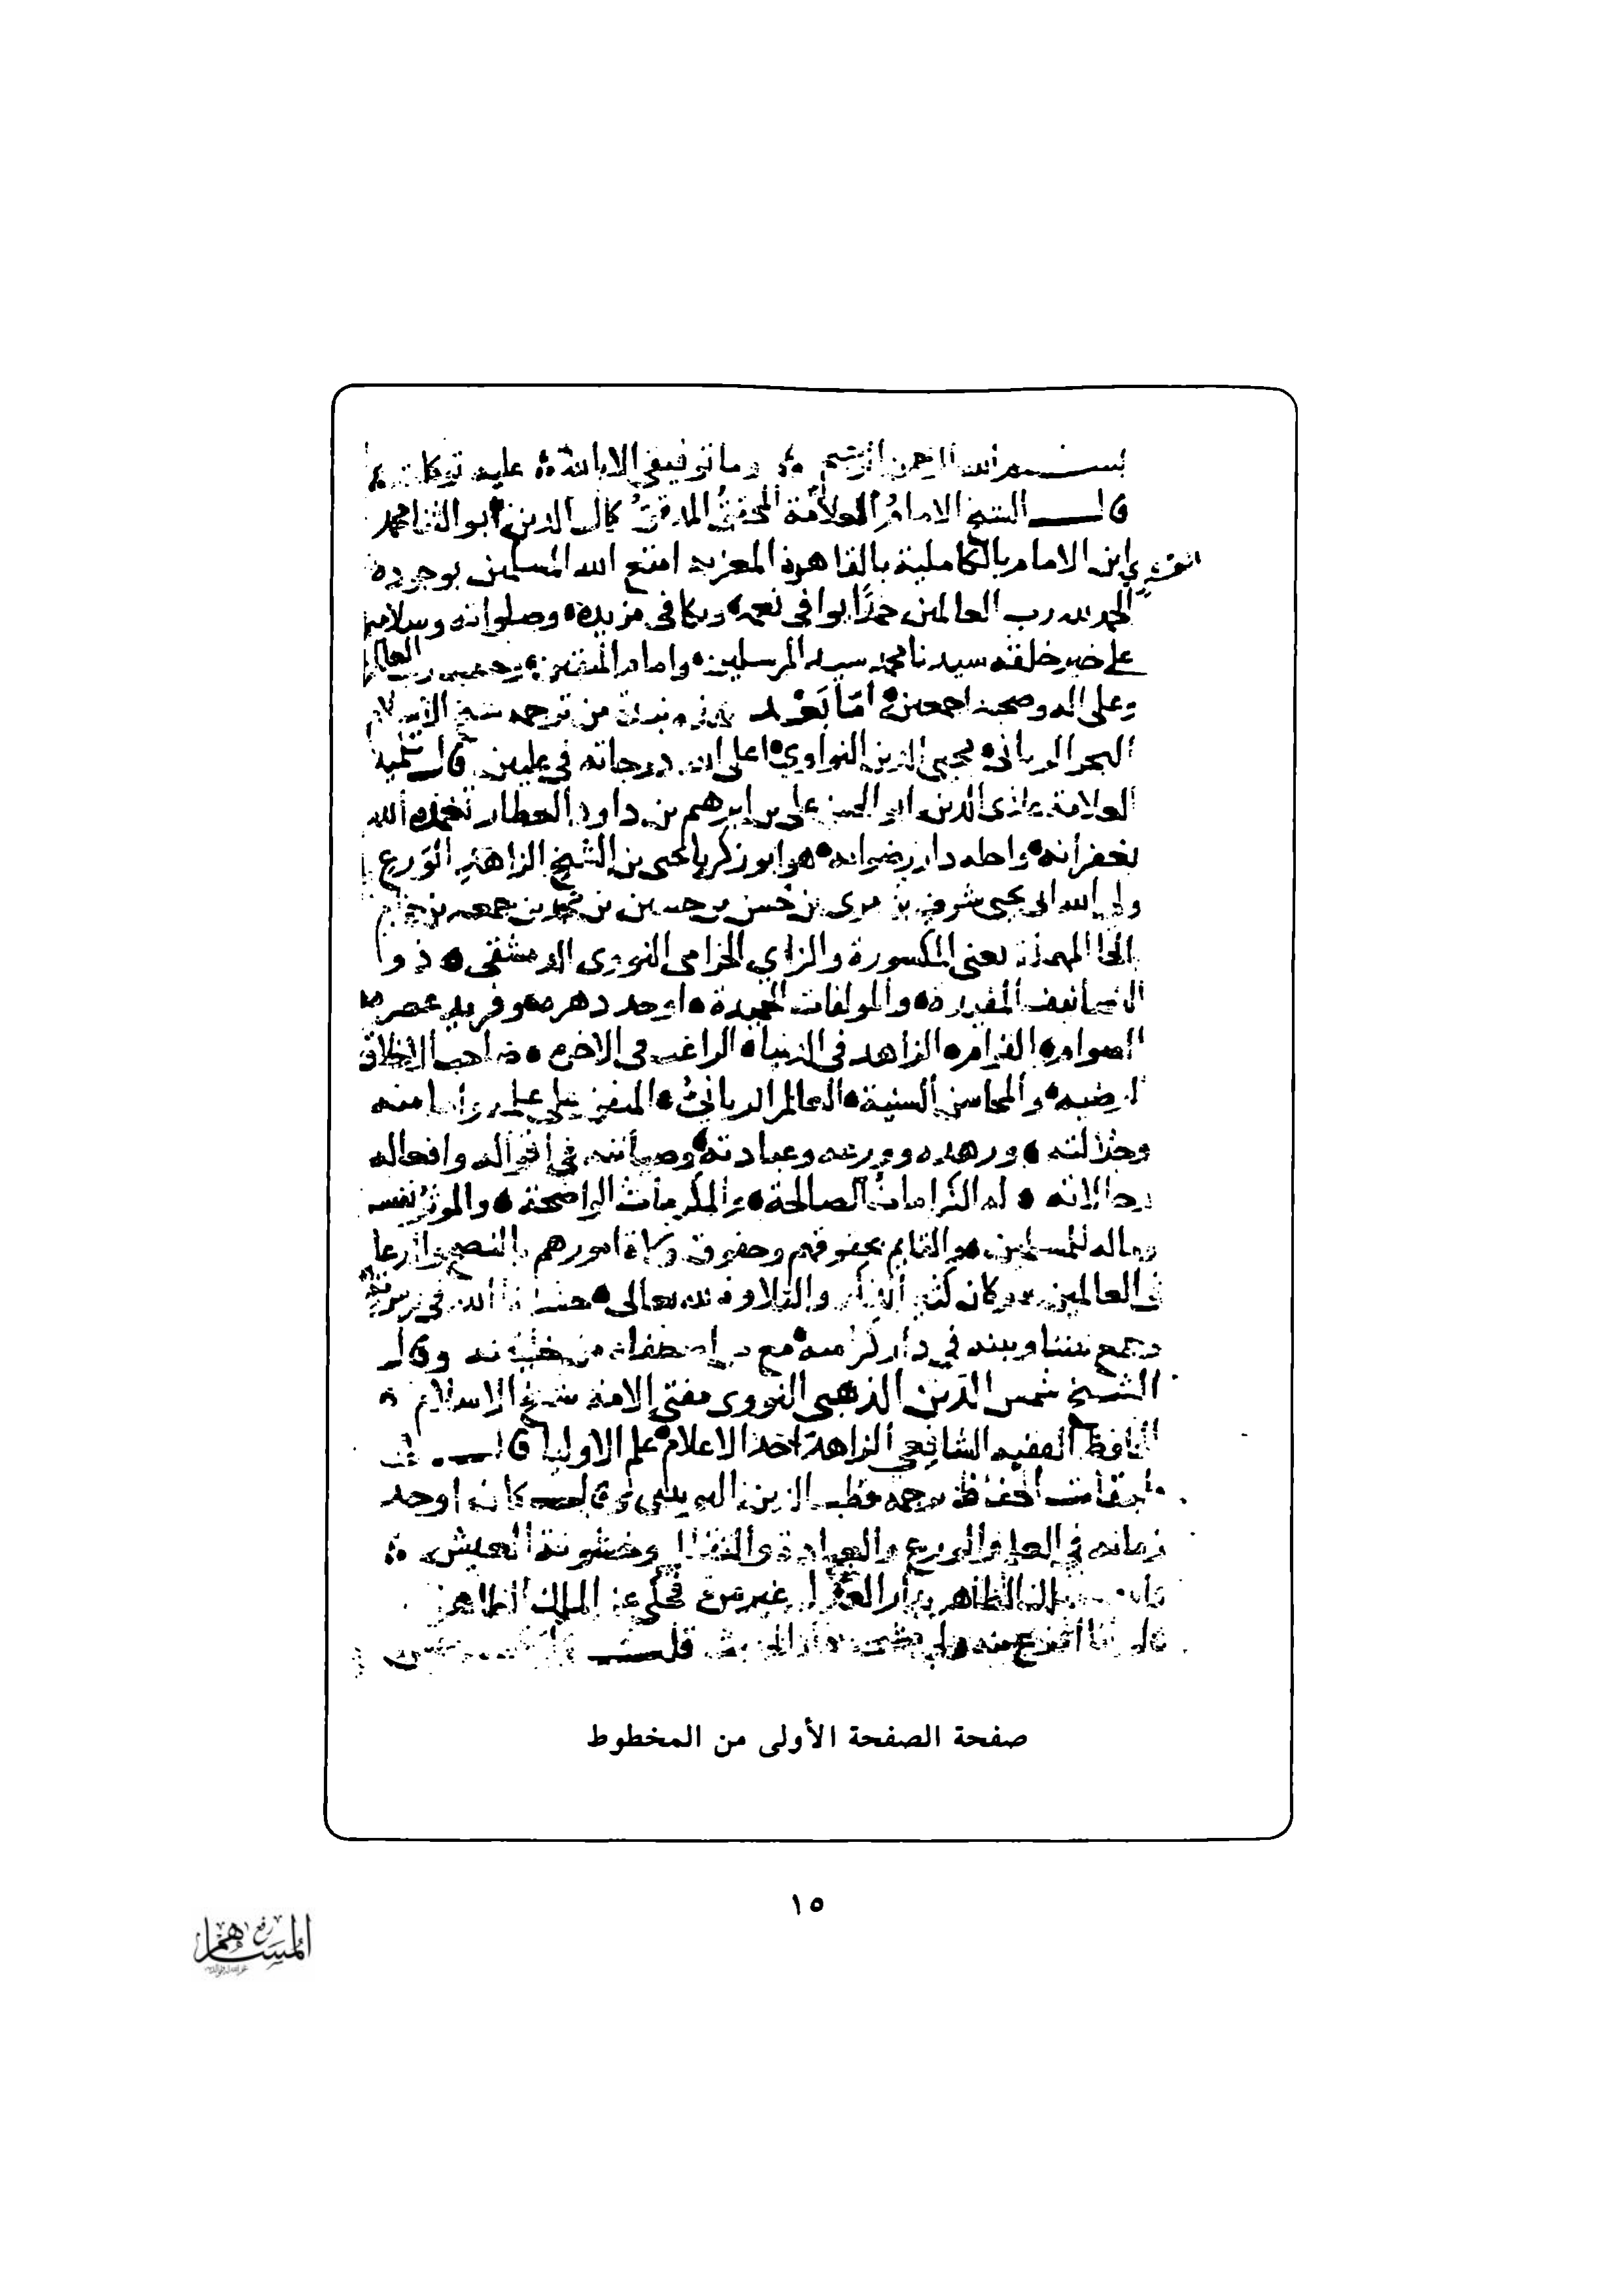 بسم الله الرحمن الرحيم وما توفيقي الا بالله عليه توكلت
قال الشيخ الامام العلامة المحقق المدقق كمال الدين ابو الثنا محمد
ابن الامام بالكاملية بالقاهرة المعزيه امتع الله المسلمين بوجوده
الحمد لله رب العالمين حمدًا يوافي نعمه ويكافي مزيده وصلواته وسلامه
على خير خلقه سيدنا محمد سيد المرسلين وامام المتقين العالم
وعلى اله وصحبه اجمعين امّا بَعْد فهذه نبذة من ترجمه شيخ الاسلام
البحر الرباني محيي الدين النواوي اعلى الله درجاته في عليين قال تلميذه
العلامة علاء الدين ابو الحسن علي بن ابرهيم بن داود العطار تغمده الله
بغفرانه واحله دار رضوانه هو ابو زكريا يحيى بن الشيخ الزاهد الورع
ولي الله ابي يحيى شرف بن مري بن حسن بن حسين بن محمد بن جمعه بن حزام
بالحا المهملة يعني المكسورة والزاي الحزامي النووي الدمشقي ذو
التصانيف المفيدة والمولفات الحميدة اوحد دهره وفريد عصره
الصوام القوام الزاهد في الدنيا الراغب في الاخره صاحب الاخلاق
الرضيه والمحاسن السنية العالم الرباني المتفق على علمه وامامته
وجلالته وزهده وورعه وعبادته وصيانته في اقواله وافعاله
وحالاته له الكرامات الصالحة والمكرمات الواضحة والموثر بنفسه
وماله للمسلمين والقايم بحقوقهم وحقوق ولاة امورهم بالنصح والدعا
في العالمين وكان كثير الذكر والتلاوة لله تعالى حشرنا الله في زمرته
وجمع بيننا وبينه في دار كرامته مع من اصطفاه من خليقته وقال
الشيخ شمس الدين الذهبي النووي مفتي الامة شيخ الاسلام
الحافظ الفقيه الشافعي الزاهد احد الاعلام علم الاوليا قال في
طبقات الحفاظ ترجمه قطب الدين اليونيني وقال كان اوحد
زمانه في العلم والورع والعبادة والتقلل وخشونة العيش
الملك الظاهر بدار العدل غير مرة فحكي عن الملك الظاهر
قال انا افزع منه ولي مشيخة دار الحديث قلت
صفحة الصفحة الأولى من المخطوط
١٥
المساهم